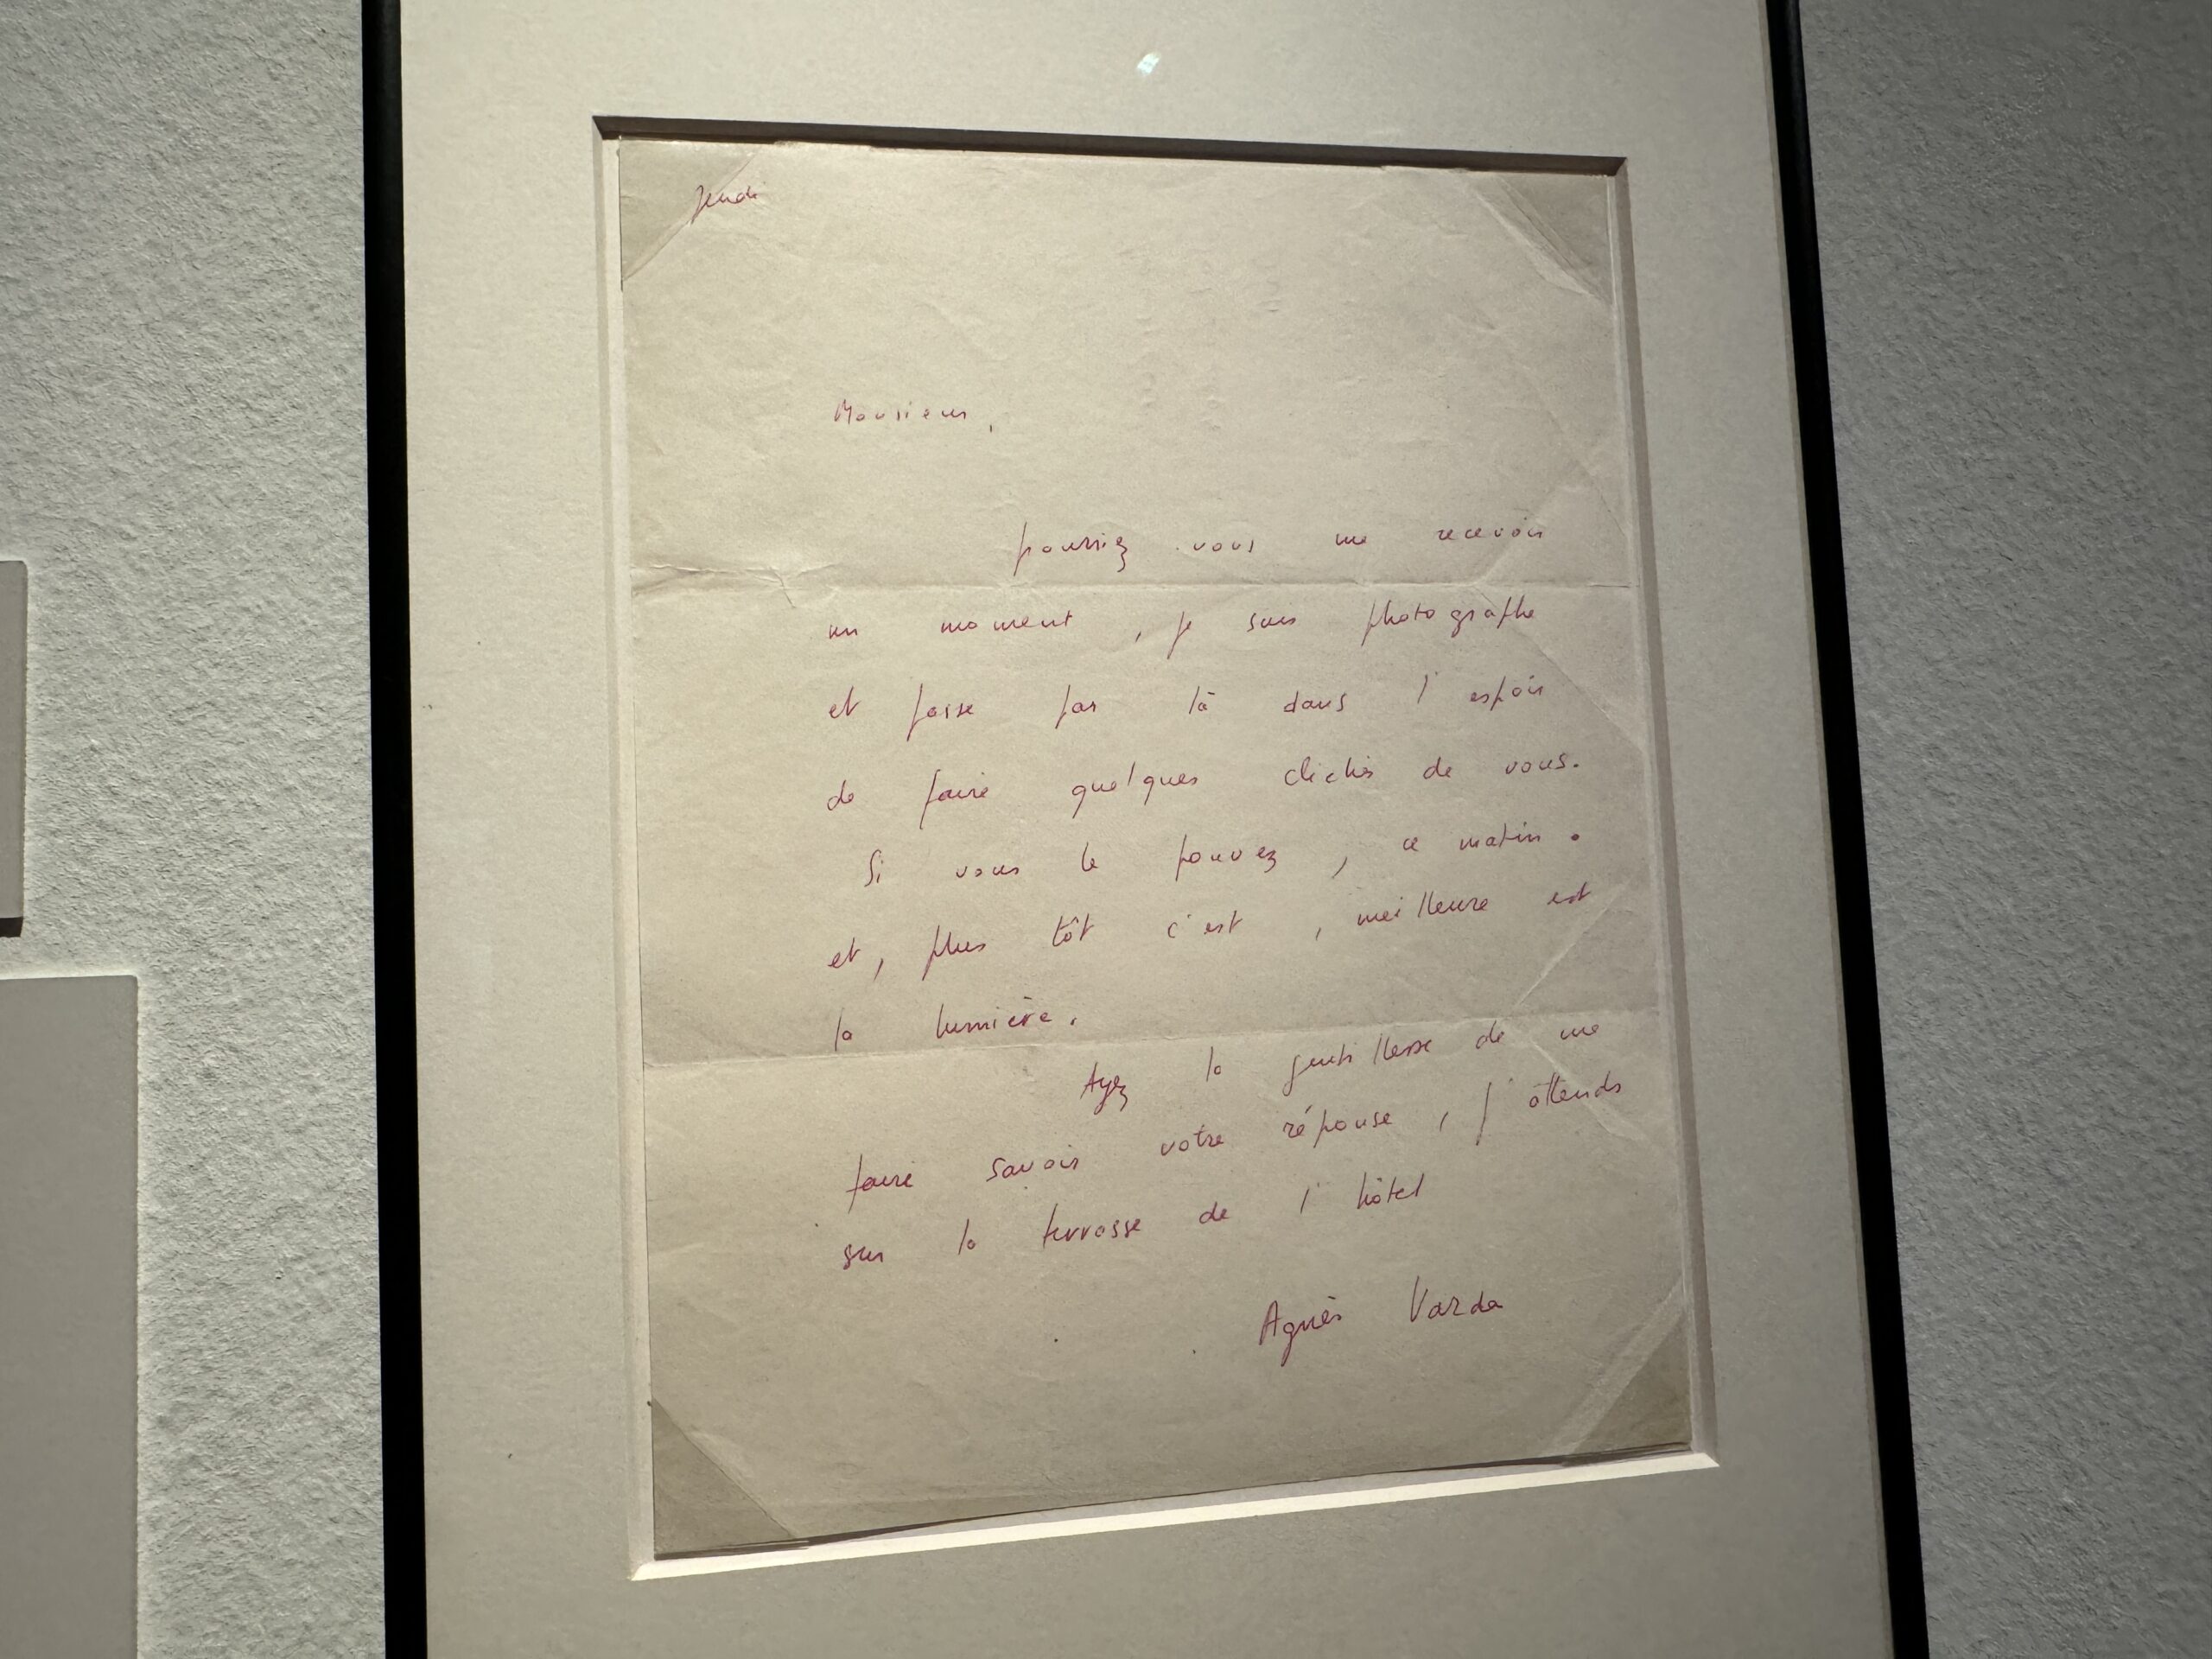 Jeudi
Monsieur,
pourriez vous me recevoir
un moment, je suis photographe
et passe par là dans l'espoir
de faire quelques clichés de vous.
Si vous le pouvez, ce matin.
et, plus tôt c'est, meilleure est
la lumière.
Ayez la gentillesse de me
faire savoir votre réponse, j'attends
sur la terrasse de l'hôtel
Agnès Varda